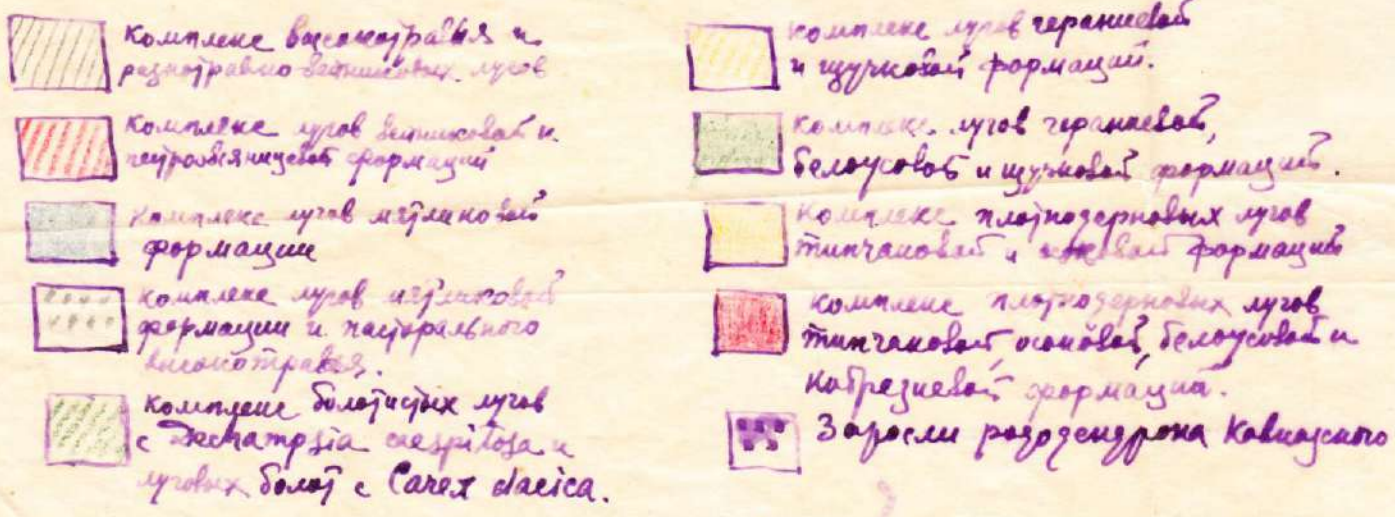 Комплекс высокотравья и
разнотравно вейниковых лугов
Комплекс лугов вейниковой и
пестроовсяницевой формаций
Комплекс лугов мятликовой
формации
Комплекс лугов мятликовой
формации и пасторального
высокотравья.
Комплекс болотистых лугов
с Deschampsia caespitosa и
луговых болот с Carex dacica.
Комплекс лугов гераниевой
и щучковой формаций.
Комплекс лугов гераниевой,
белоусовой и щучковой формаций.
Комплекс плотнодерновых лугов
типчаковой и осоковой формаций
Комплекс плотнодерновых лугов
типчаковой, осоковой, белоусовой и
кобрезиевой формаций.
Заросли рододендрона Кавказского